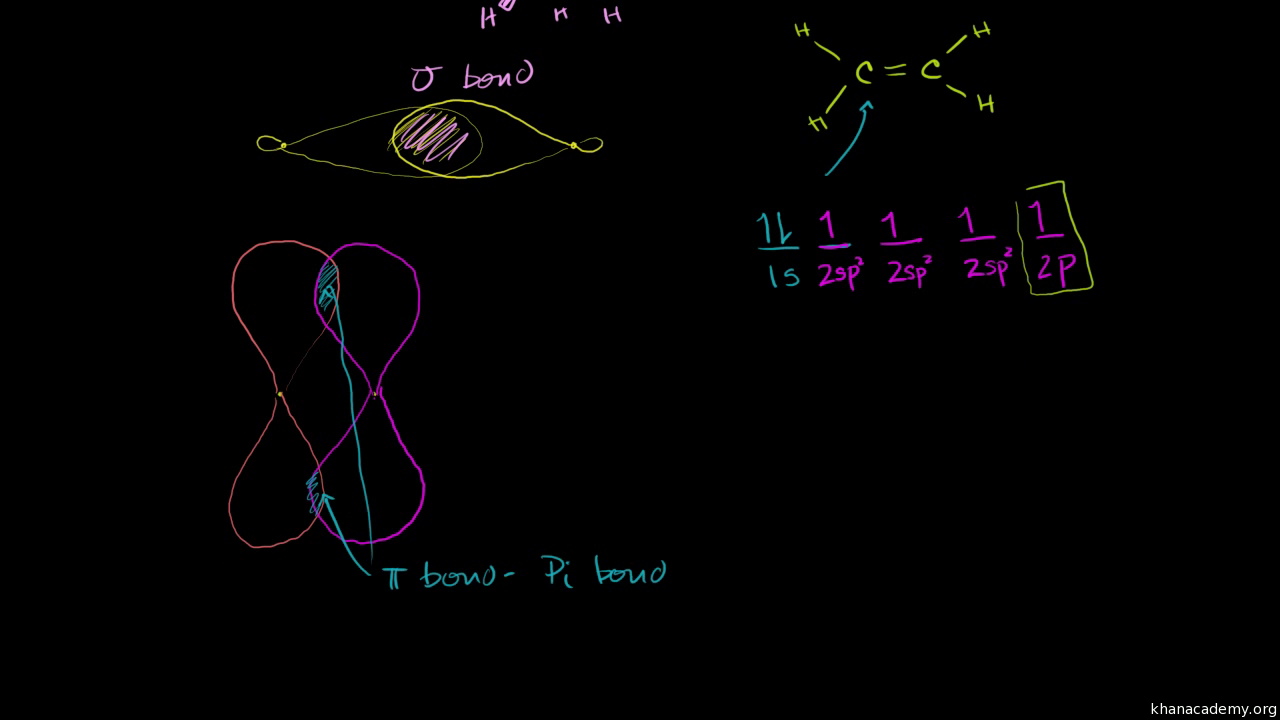 H H H
σ bond
H H
C = C
H H
1L 1 1 1 1
1s 2sp² 2sp² 2sp² 2p
π bond - Pi bond
khanacademy.org